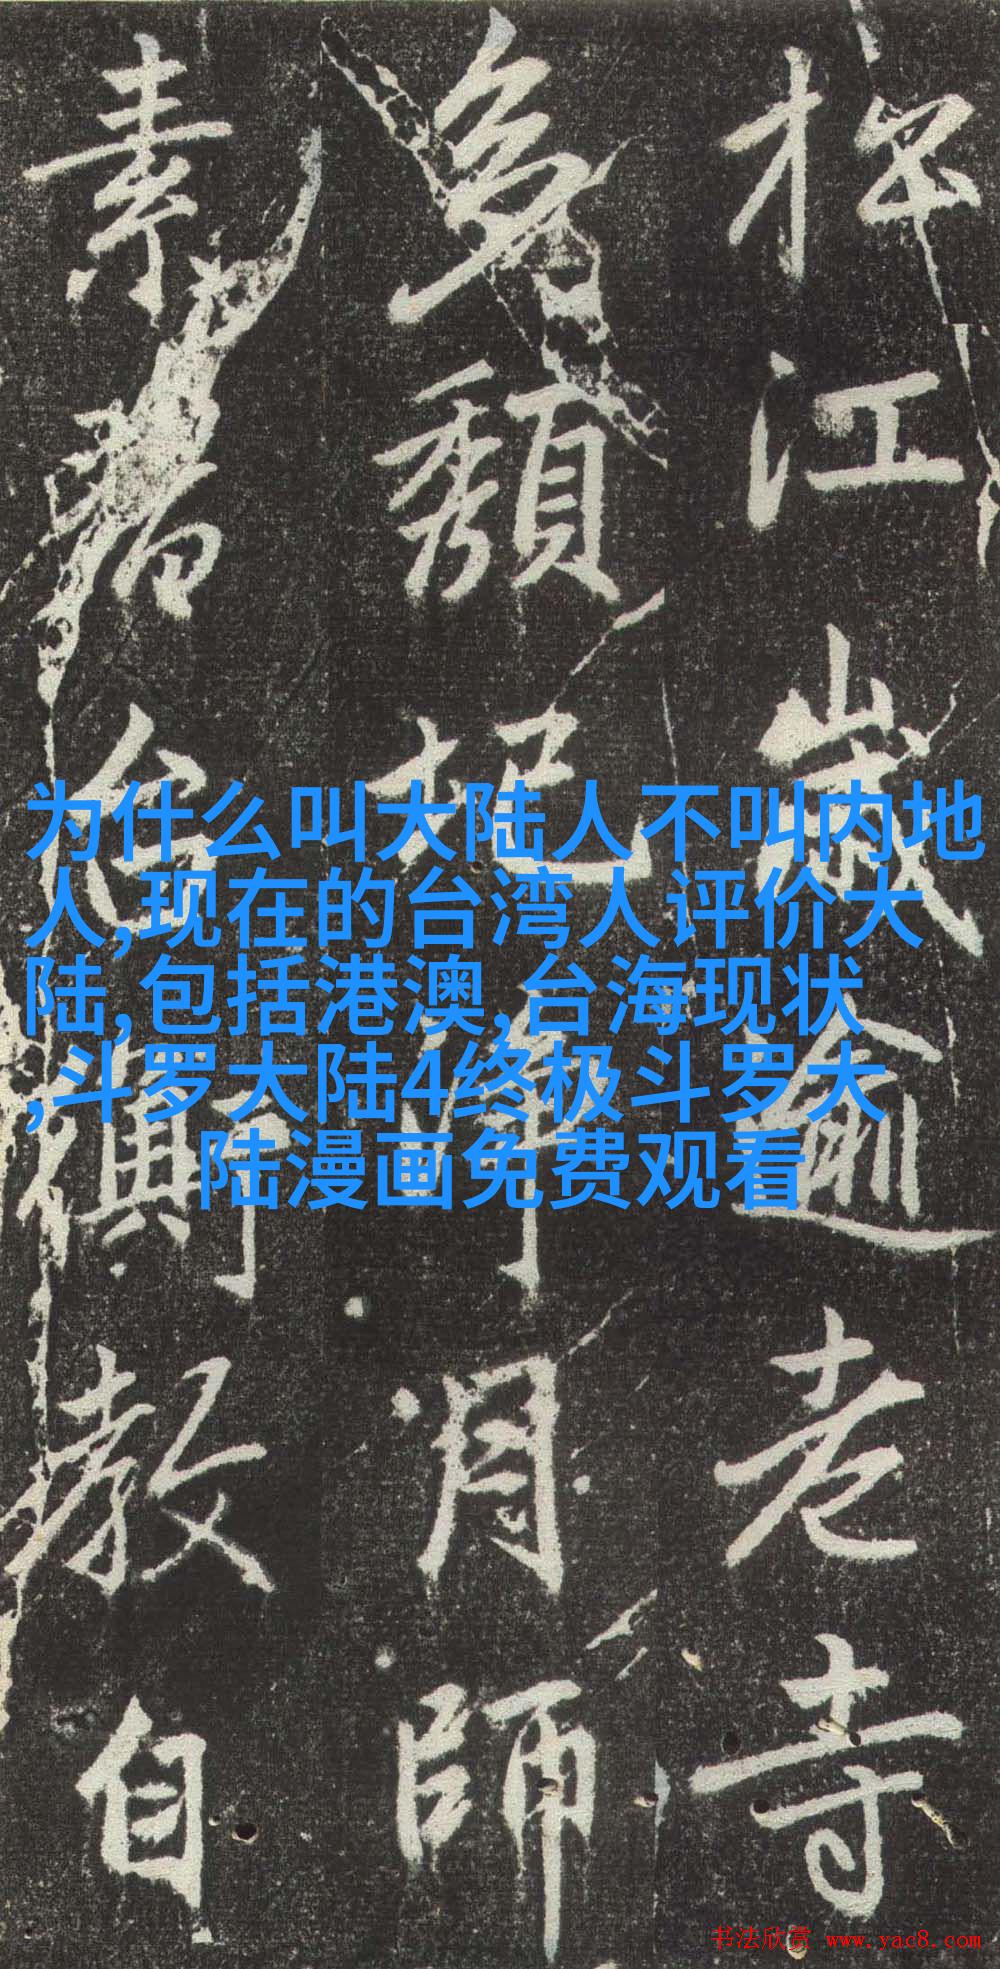 江歲逾老寺
頹圮月師
素教自
为什么叫大陆人不叫内地
人,现在的台湾人评价大
陆,包括港澳,台海现状
,斗罗大陆4终极斗罗大
陆漫画免费观看
书法欣赏 www.yac8.com